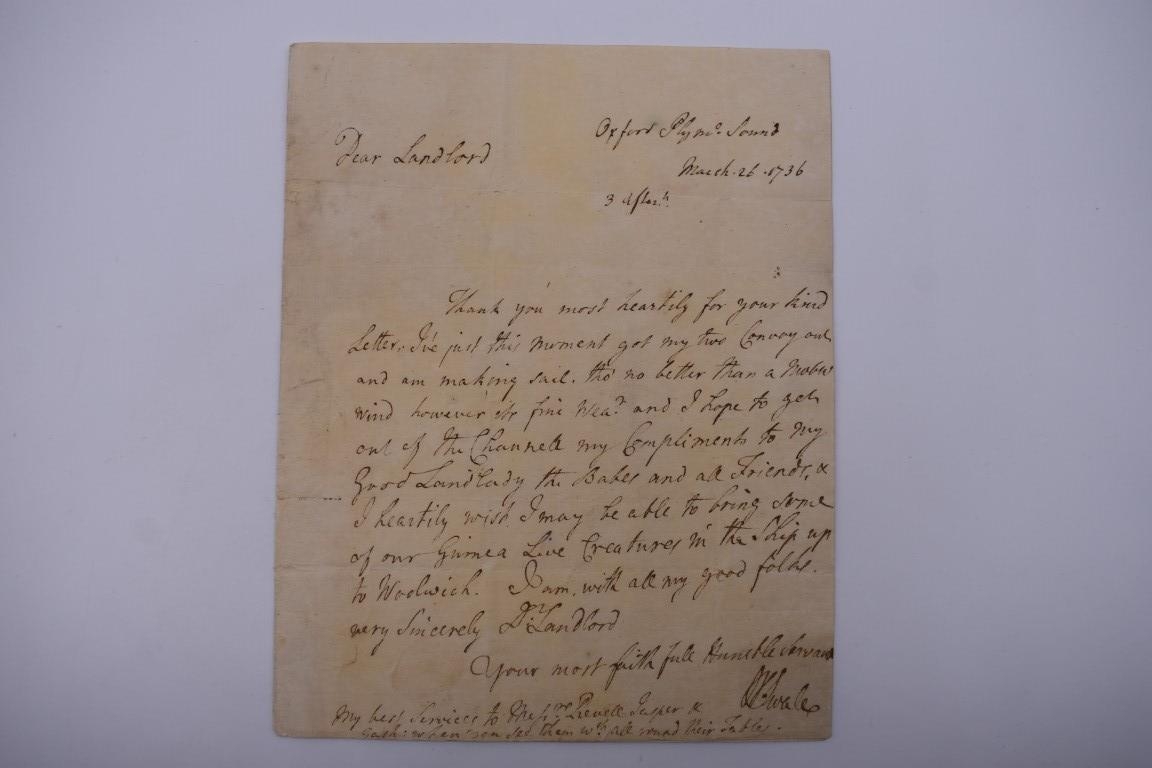 Oxford Plymo. Sound
Dear Landlord
March. 26. 1736
3 Aftern.
Thank you most heartily for your kind
Letter. I've just this moment got my two Convoy out
and am making sail. tho' no better than a
wind however its fine Wear. and I hope to get
out of the Channell my Compliments to my
Good Landlady the Babes and all Friends, &
I heartily wish I may be able to bring some
of our Guinea Live Creatures in the Ship up
to Woolwich. I am, with all my good folks.
very Sincerely Dr. Landlord
Your most faithfull Humble Servant
Swale
My best Services to Messrs. Jasper &
when you see them wth. all round their Tables.